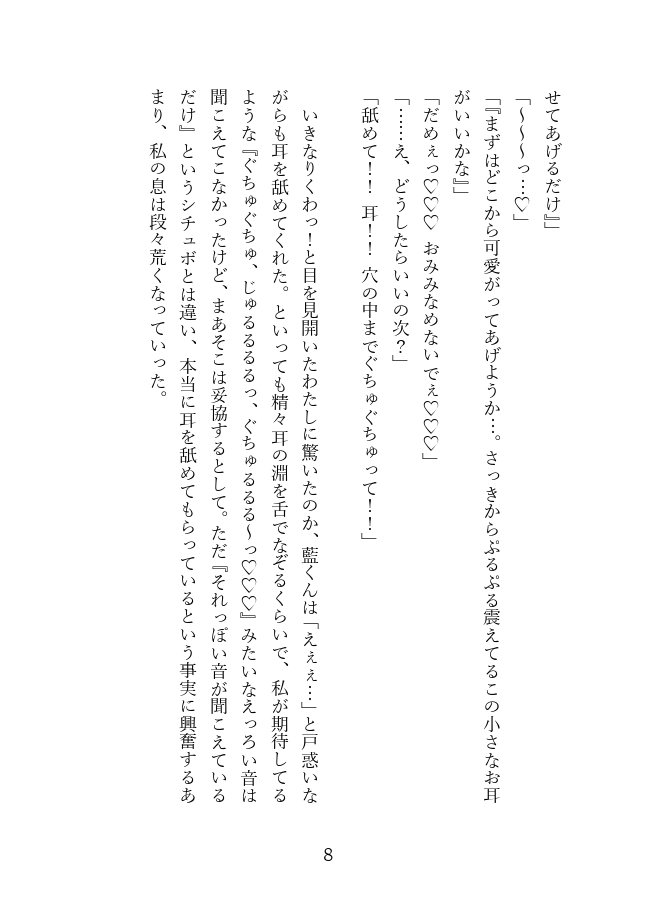 せてあげるだけ』」
「〜〜〜っ…♡」
「『まずはどこから可愛がってあげようか…。さっきからぷるぷる震えてるこの小さなお耳
がいいかな』」
「だめぇっ♡♡♡ おみみなめないでぇ♡♡♡」
「……え、どうしたらいいの次？」
「舐めて！！ 耳！！ 穴の中までぐちゅぐちゅって！！」
いきなりくわっ！と目を見開いたわたしに驚いたのか、藍くんは「えぇぇ…」と戸惑いな
がらも耳を舐めてくれた。といっても精々耳の淵を舌でなぞるくらいで、私が期待してる
ような『ぐちゅぐちゅ、じゅるるるるっ、ぐちゅるるる〜っ♡♡♡』みたいなえっろい音は
聞こえてこなかったけど、まあそこは妥協するとして。ただ『それっぽい音が聞こえている
だけ』というシチュボとは違い、本当に耳を舐めてもらっているという事実に興奮するあ
まり、私の息は段々荒くなっていった。
8